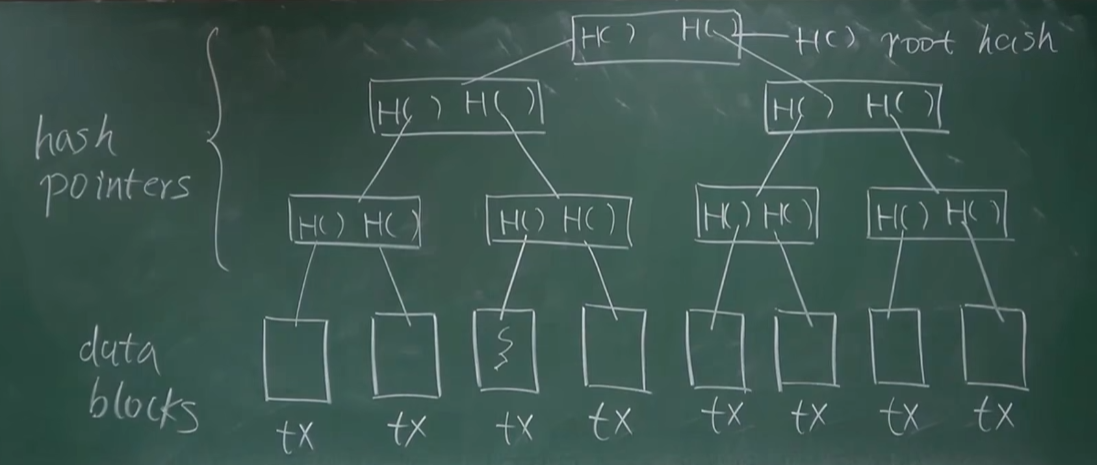 H( ) H( ) H( ) root hash
H( ) H( ) H( ) H( )
hash
pointers
H( ) H( ) H( ) H( ) H( ) H( ) H( ) H( )
data
blocks
tx tx tx tx tx tx tx tx